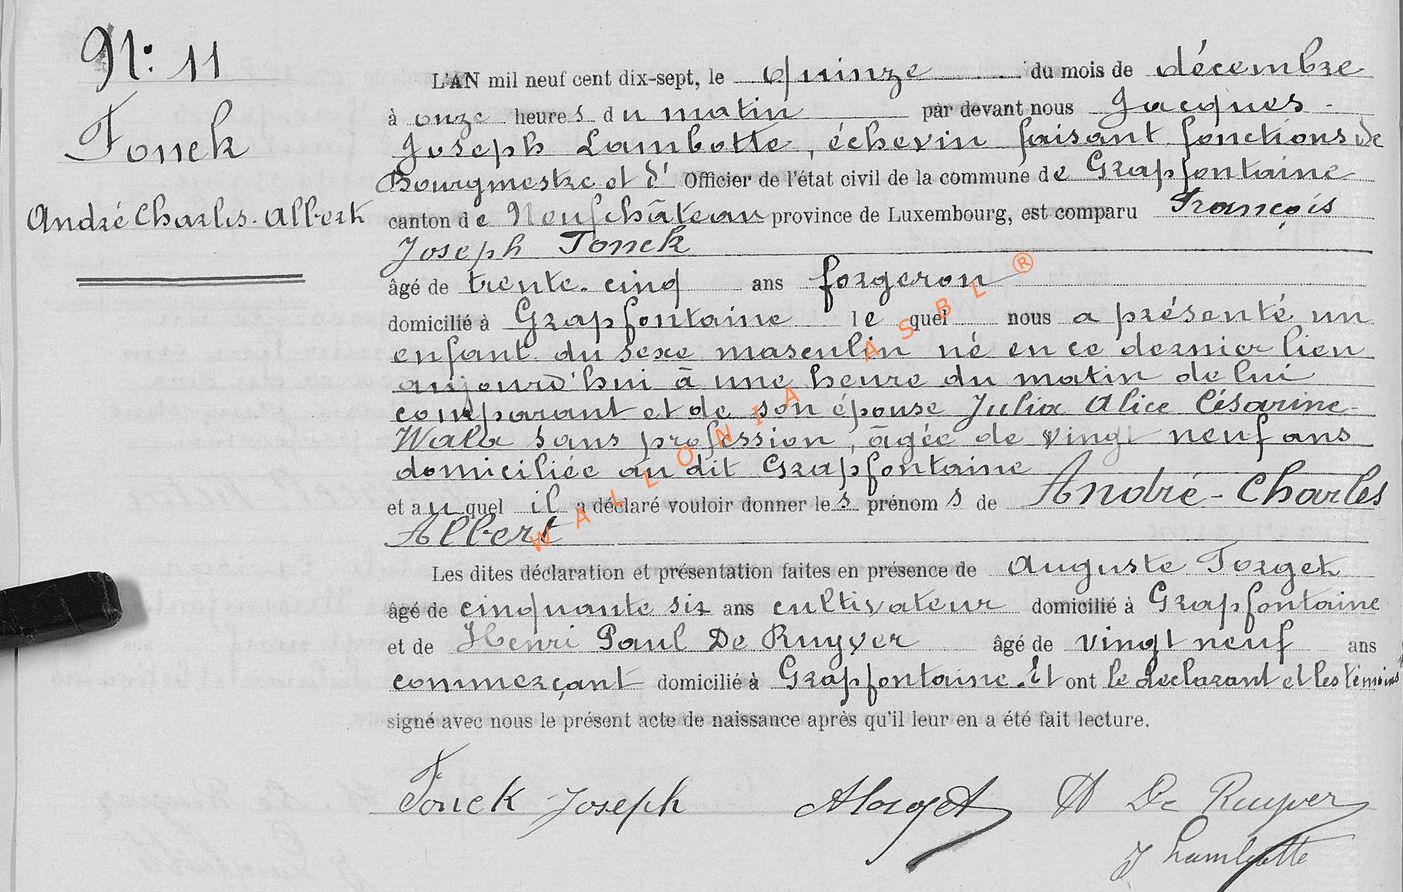 N: 11
Fonck
André Charles-Albert
L'AN mil neuf cent dix-sept, le quinze du mois de décembre
à onze heures du matin par devant nous Jacques
Joseph Lambotte, échevin faisant fonctions de
Bourgmestre et d' Officier de l'état civil de la commune de Grapfontaine
canton de Neufchâteau province de Luxembourg, est comparu François
Joseph Fonck
âgé de trente-cinq ans forgeron
domicilié à Grapfontaine lequel nous a présenté un
enfant du sexe masculin né en ce dernier lieu
aujourd'hui à une heure du matin de lui
comparant et de son épouse Julia Alice Césarine
Wala sans profession, âgée de vingt neuf ans
domiciliée au dit Grapfontaine
et auquel il a déclaré vouloir donner les prénoms de André-Charles
Albert
WALLONIA ASBL ®
Les dites déclaration et présentation faites en présence de Auguste Forget
âgé de cinquante six ans cultivateur domicilié à Grapfontaine
et de Henri Paul De Ruyver âgé de vingt neuf ans
commerçant domicilié à Grapfontaine. Et ont le déclarant et les témoins
signé avec nous le présent acte de naissance après qu'il leur en a été fait lecture.
Fonck Joseph H De Ruyver
J Lambotte